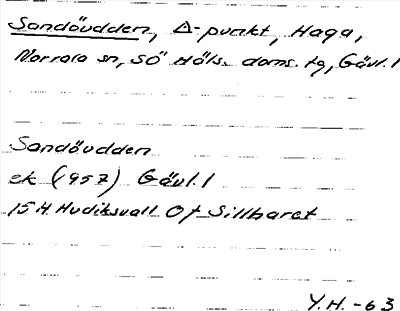 Sandöudden, Δ-punkt, Haga,
Norrala sn, SÖ Häls. doms. tg, Gävl. l
Sandöudden
ek (1957) Gävl. l
15 H. Hudiksvall 0 f Sillharet
Y.H. -63